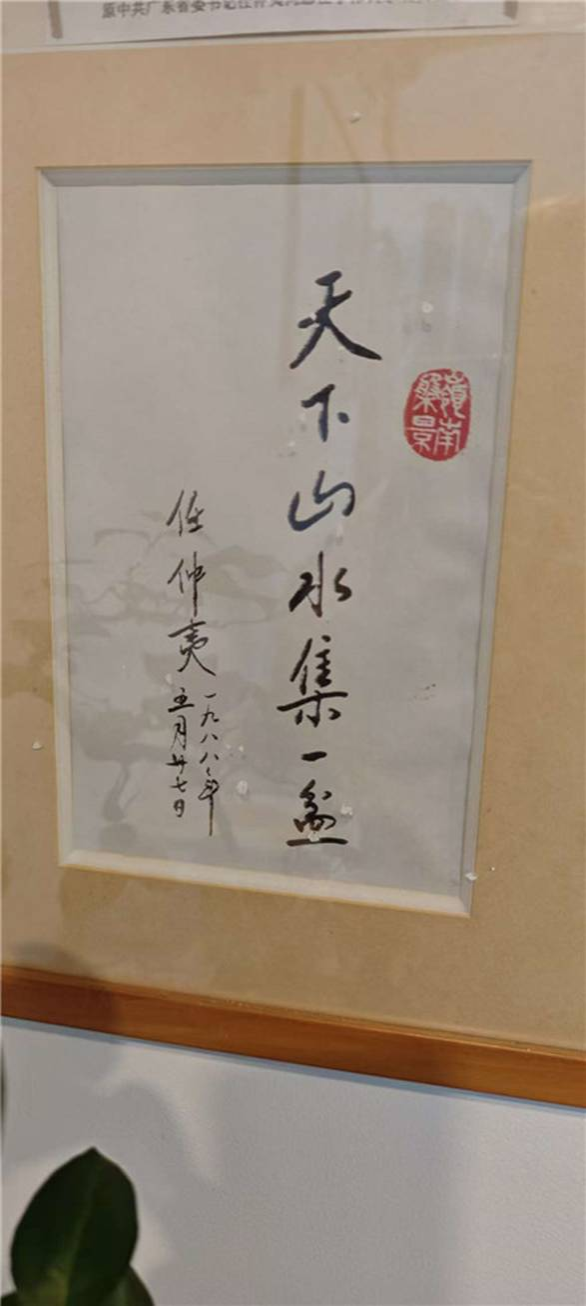 原中共广东省委书记任仲夷同志
天下山水集一盆
嶺南
盤景
任仲夷
一九八八年
五月廿七日